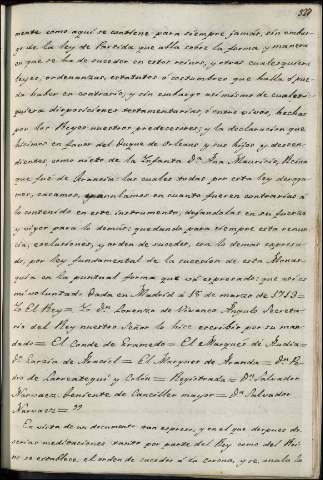 327
mente como aquí se contiene para siempre jamás, sin embar-
go de la ley de Partida que habla sobre la forma y manera
en que se ha de suceder en estos reinos, y otras cualesquiera
leyes, ordenanzas, estatutos ó costumbres que halla ó pue-
da haber en contrario, y sin embargo asimismo de cuales-
quiera disposiciones testamentarias, ó entre vivos, hechas
por los Reyes nuestros predecesores; y la declaracion que
hicimos en favor del duque de Orleans y sus hijos y descen-
dientes como nieto de la Infanta Dª Ana Mauricia, Reina
que fué de Francia: las cuales todas por esta ley deroga-
mos, casamos, y anulamos en cuanto fueren contrarias á
lo contenido en este instrumento, dejandolas en su fuerza
y vigor para lo demás: quedando para siempre esta renun-
cia, exclusiones, y orden de suceder, con lo demas expresa-
do, por ley fundamental de la sucesion de esta Monar-
quia en la puntual forma que vá expresado: que así es
mi voluntad. Dada en Madrid á 18 de marzo de 1713=
Yo El Rey = Yo Dn. Lorenzo de Vivanco Angulo Secreta-
rio del Rey nuestro Señor lo hice escribir por su man-
dado = El Conde de Gramedo = El Marqués de Andia =
Dn. Garcia de Araciel = El Marques de Aranda = Dn. Pe-
dro de Larreategui y Colón = Registrada = Dn. Salvador
Narvaez, teniente de Canciller mayor = Dn. Salvador
Narvaez = "
En vista de un documento tan expreso, y en el que despues de
serias meditaciones tanto por parte del Rey como del Rei-
no se establece el orden de suceder á la corona, y se anula la